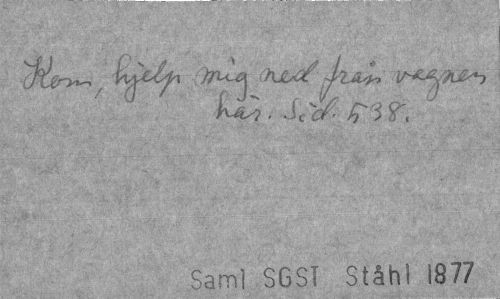 Kom, hjelp mig ned från vagnen
här. Sid. 538.
Saml SGST Ståhl 1877